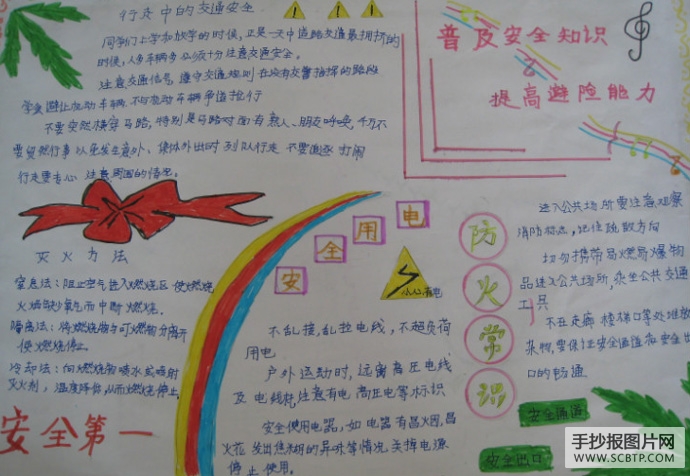 行走中的交通安全
同学们上学和放学的时候,正是一天中道路交通最拥挤的
时候,人多车辆多,必须十分注意交通安全。
注意交通信息,遵守交通规则在没有交警指挥的路段
学会避让机动车辆,不与机动车辆争道抢行
不要突然横穿马路,特别是马路对面有熟人、朋友呼唤,千万不
要贸然行事以免发生意外、集体外出时列队行走 不要追逐打闹
行走要专心 注意周围的情况。
普及安全知识
提高避险能力
灭火方法
窒息法:阻止空气进入燃烧区 使燃烧
火焰缺少氧气而中断燃烧。
隔离法:将燃烧物与可燃物分离开
使燃烧停止
冷却法:向燃烧物喷水或喷射
灭火剂,温度降低,从而燃烧停止
安全第一
安全用电
小心有电
不乱接,乱拉电线,不超负荷
用电
户外运动时,远离高压电线
及电线杆,注意有电高压电等标识
安全使用电器,如电器有冒火园,冒
火花 发出焦糊的异味等情况 关掉电源
停止使用。
防火常识
进入公共场所要注意观察
消防标志,记住疏散方向
切勿携带易燃易爆物
品进入公共场所,乘坐公共交通
工具
不在走廊 楼梯口等处堆放
杂物,要保证安全通道和安全出
口的畅通
安全通道
安全出口
手抄报图片网
WWW.SCBTP.COM